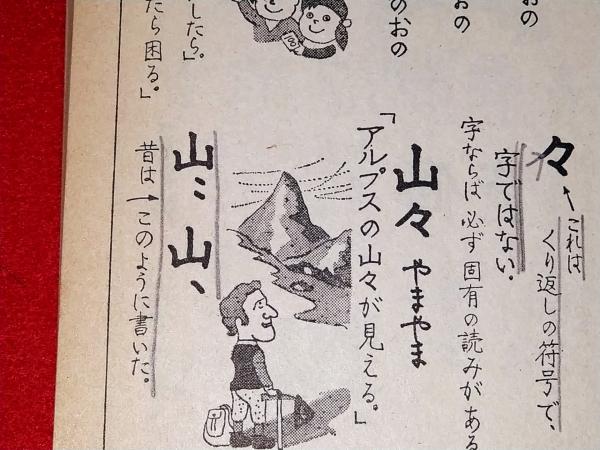 おの
おの
のおの
したら。」
たら困る。」
々←これは
くり返しの符号で、
字ではない。
字ならば必ず固有の読みがある
山々 やまやま
「アルプスの山々が見える。」
山〻 山ヽ
昔は→このように書いた。